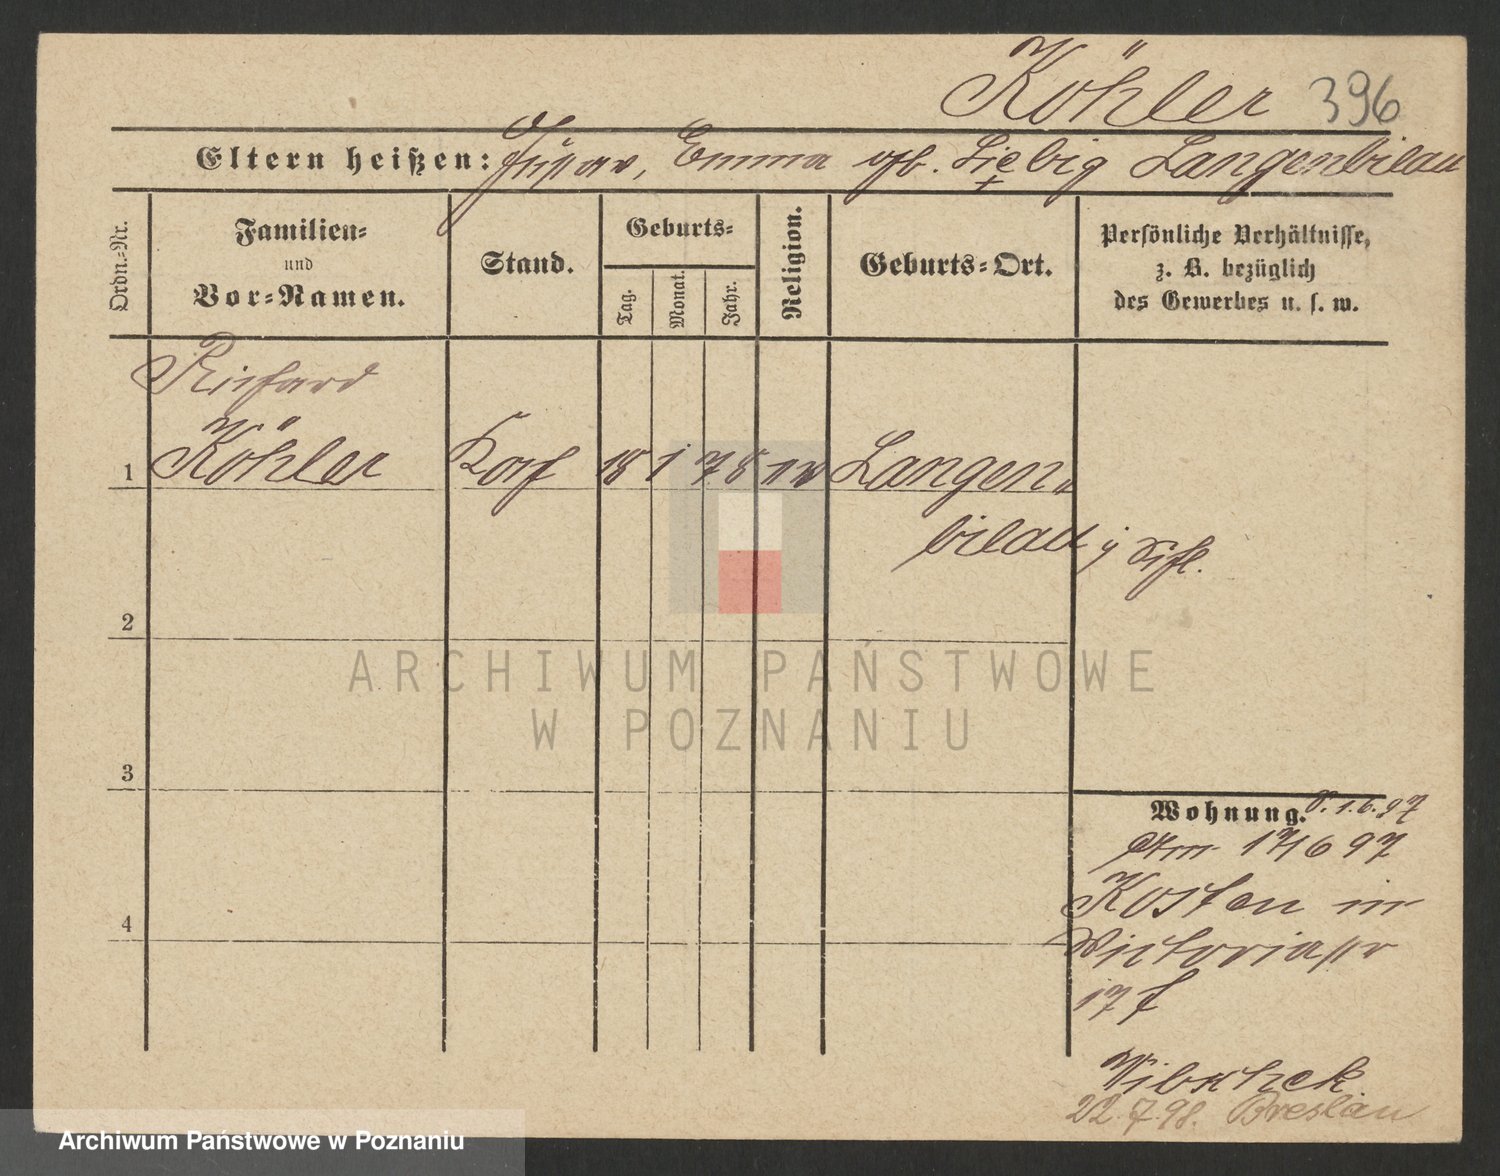 Köhler 396
Eltern heißen: Gustav, Emma geb. Liebig Langenbilau
Ordn.-Nr.
Familien-
und
Vor-Namen.
Stand.
Geburts-
Tag.
Monat.
Jahr.
Religion.
Geburts-Ort.
Persönliche Verhältnisse,
z. B. bezüglich
des Gewerbes u. s. w.
Richard
1 Köhler 18 1 78 Langen-
bilau
2
ARCHIWUM PAŃSTWOWE
W POZNANIU
3
4
Wohnung. 1.6.97
17/6 97
Kosten in
Victoriastr
17
22.7.98. Breslau
Archiwum Państwowe w Poznaniu